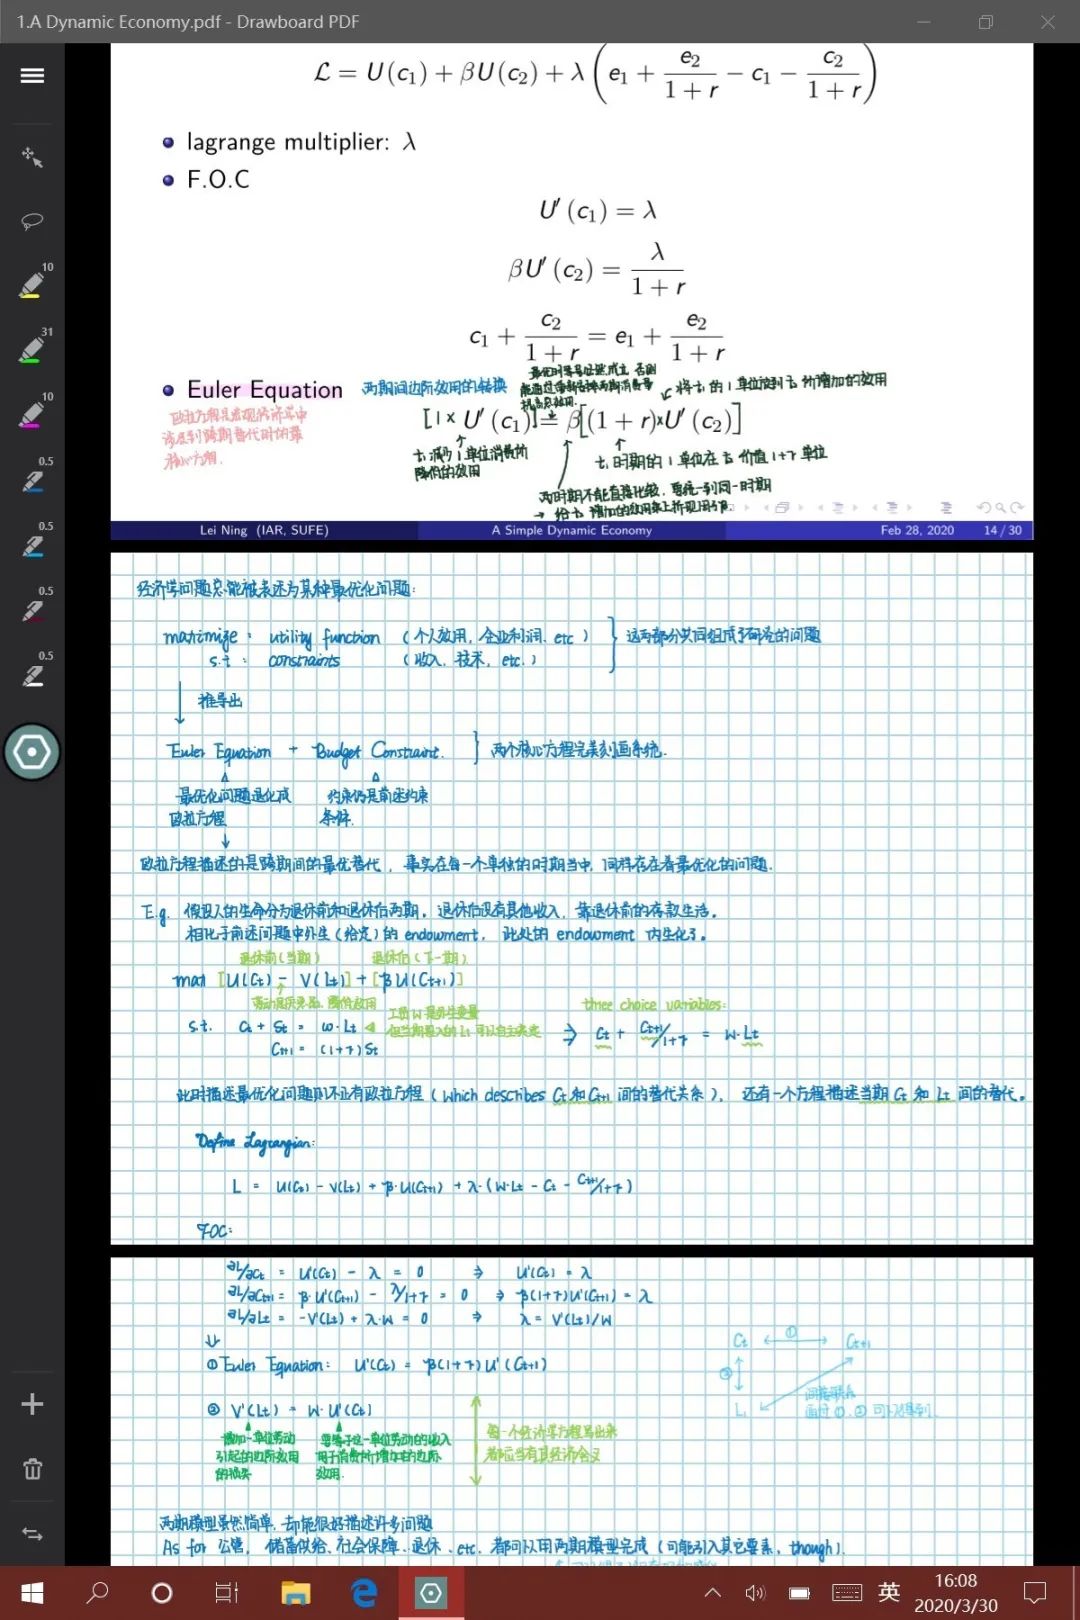 1.A Dynamic Economy.pdf - Drawboard PDF
ℒ = U(c₁) + βU(c₂) + λ(e₁ + e₂/(1+r) − c₁ − c₂/(1+r))
lagrange multiplier: λ
F.O.C
U′(c₁) = λ
βU′(c₂) = λ/(1+r)
c₁ + c₂/(1+r) = e₁ + e₂/(1+r)
Euler Equation 两期间边际效用的转换
将t₁的1单位放到t₂所增加的效用
欧拉方程是宏观经济学中
涉及到跨期替代时的最
核心方程.
[1× U′(c₁)] = β[(1 + r)×U′(c₂)]
t₁减少1单位消费所
降低的效用
t₁时期的1单位在t₂价值1+r单位
两时期不能直接比较，要统一到同一时期
Lei Ning (IAR, SUFE)
A Simple Dynamic Economy
Feb 28, 2020
14 / 30
经济学问题总能被表述为某种最优化问题:
maximize: utility function (个人效用, 企业利润, etc)
s.t: constraints (收入, 技术, etc.)
这两部分共同组成了研究的问题
推导出
Euler Equation + Budget Constraint. 两个核心方程完美刻画系统.
最优化问题退化成
欧拉方程
约束仍是前述约束
条件.
欧拉方程描述的是跨期间的最优替代, 事实在每一个单独的时期当中, 同样存在着最优化的问题.
E.g. 假设人的生命分为退休前和退休后两期。退休后没有其他收入, 靠退休前的存款生活。
相比于前述问题中外生(给定)的 endowment, 此处的 endowment 内生化了。
退休前(当期) 退休后(下一期)
max [U(Ct) - V(Lt)] + [βU(Ct+1)]
three choice variables:
s.t. Ct + St = w·Lt
Ct+1 = (1+r)St
⇒ Ct + Ct+1/1+r = w·Lt
此时描述最优化问题则不止有欧拉方程 (which describes Ct和Ct+1 间的替代关系), 还有一个方程描述当期 Ct 和 Lt 间的替代。
Define Lagrangian:
L = U(Ct) - V(Lt) + β·U(Ct+1) + λ·(w·Lt - Ct - Ct+1/1+r)
FOC:
∂L/∂Ct = U'(Ct) - λ = 0 ⇒ U'(Ct) = λ
∂L/∂Ct+1 = β·U'(Ct+1) - λ/1+r = 0 ⇒ β(1+r)U'(Ct+1) = λ
∂L/∂Lt = -V'(Lt) + λ·w = 0 ⇒ λ = V'(Lt)/w
① Euler Equation: U'(Ct) = β(1+r)U'(Ct+1)
② V'(Lt) = w·U'(Ct)
增加一单位劳动
引起的边际效用
的损失
要等于这一单位劳动的收入
用于消费所增加的边际
效用.
每一个经济学方程写出来
都应当有其经济含义
Ct ① Ct+1
②
Lt
间接联系
通过①,②可以得到.
两期模型虽然简单, 却能很好描述许多问题
As for 公债, 储蓄供给、社会保障、退休、etc. 都可以用两期模型完成 (可能引入其它要素, though).
10
31
10
0.5
0.5
0.5
0.5
英
16:08
2020/3/30